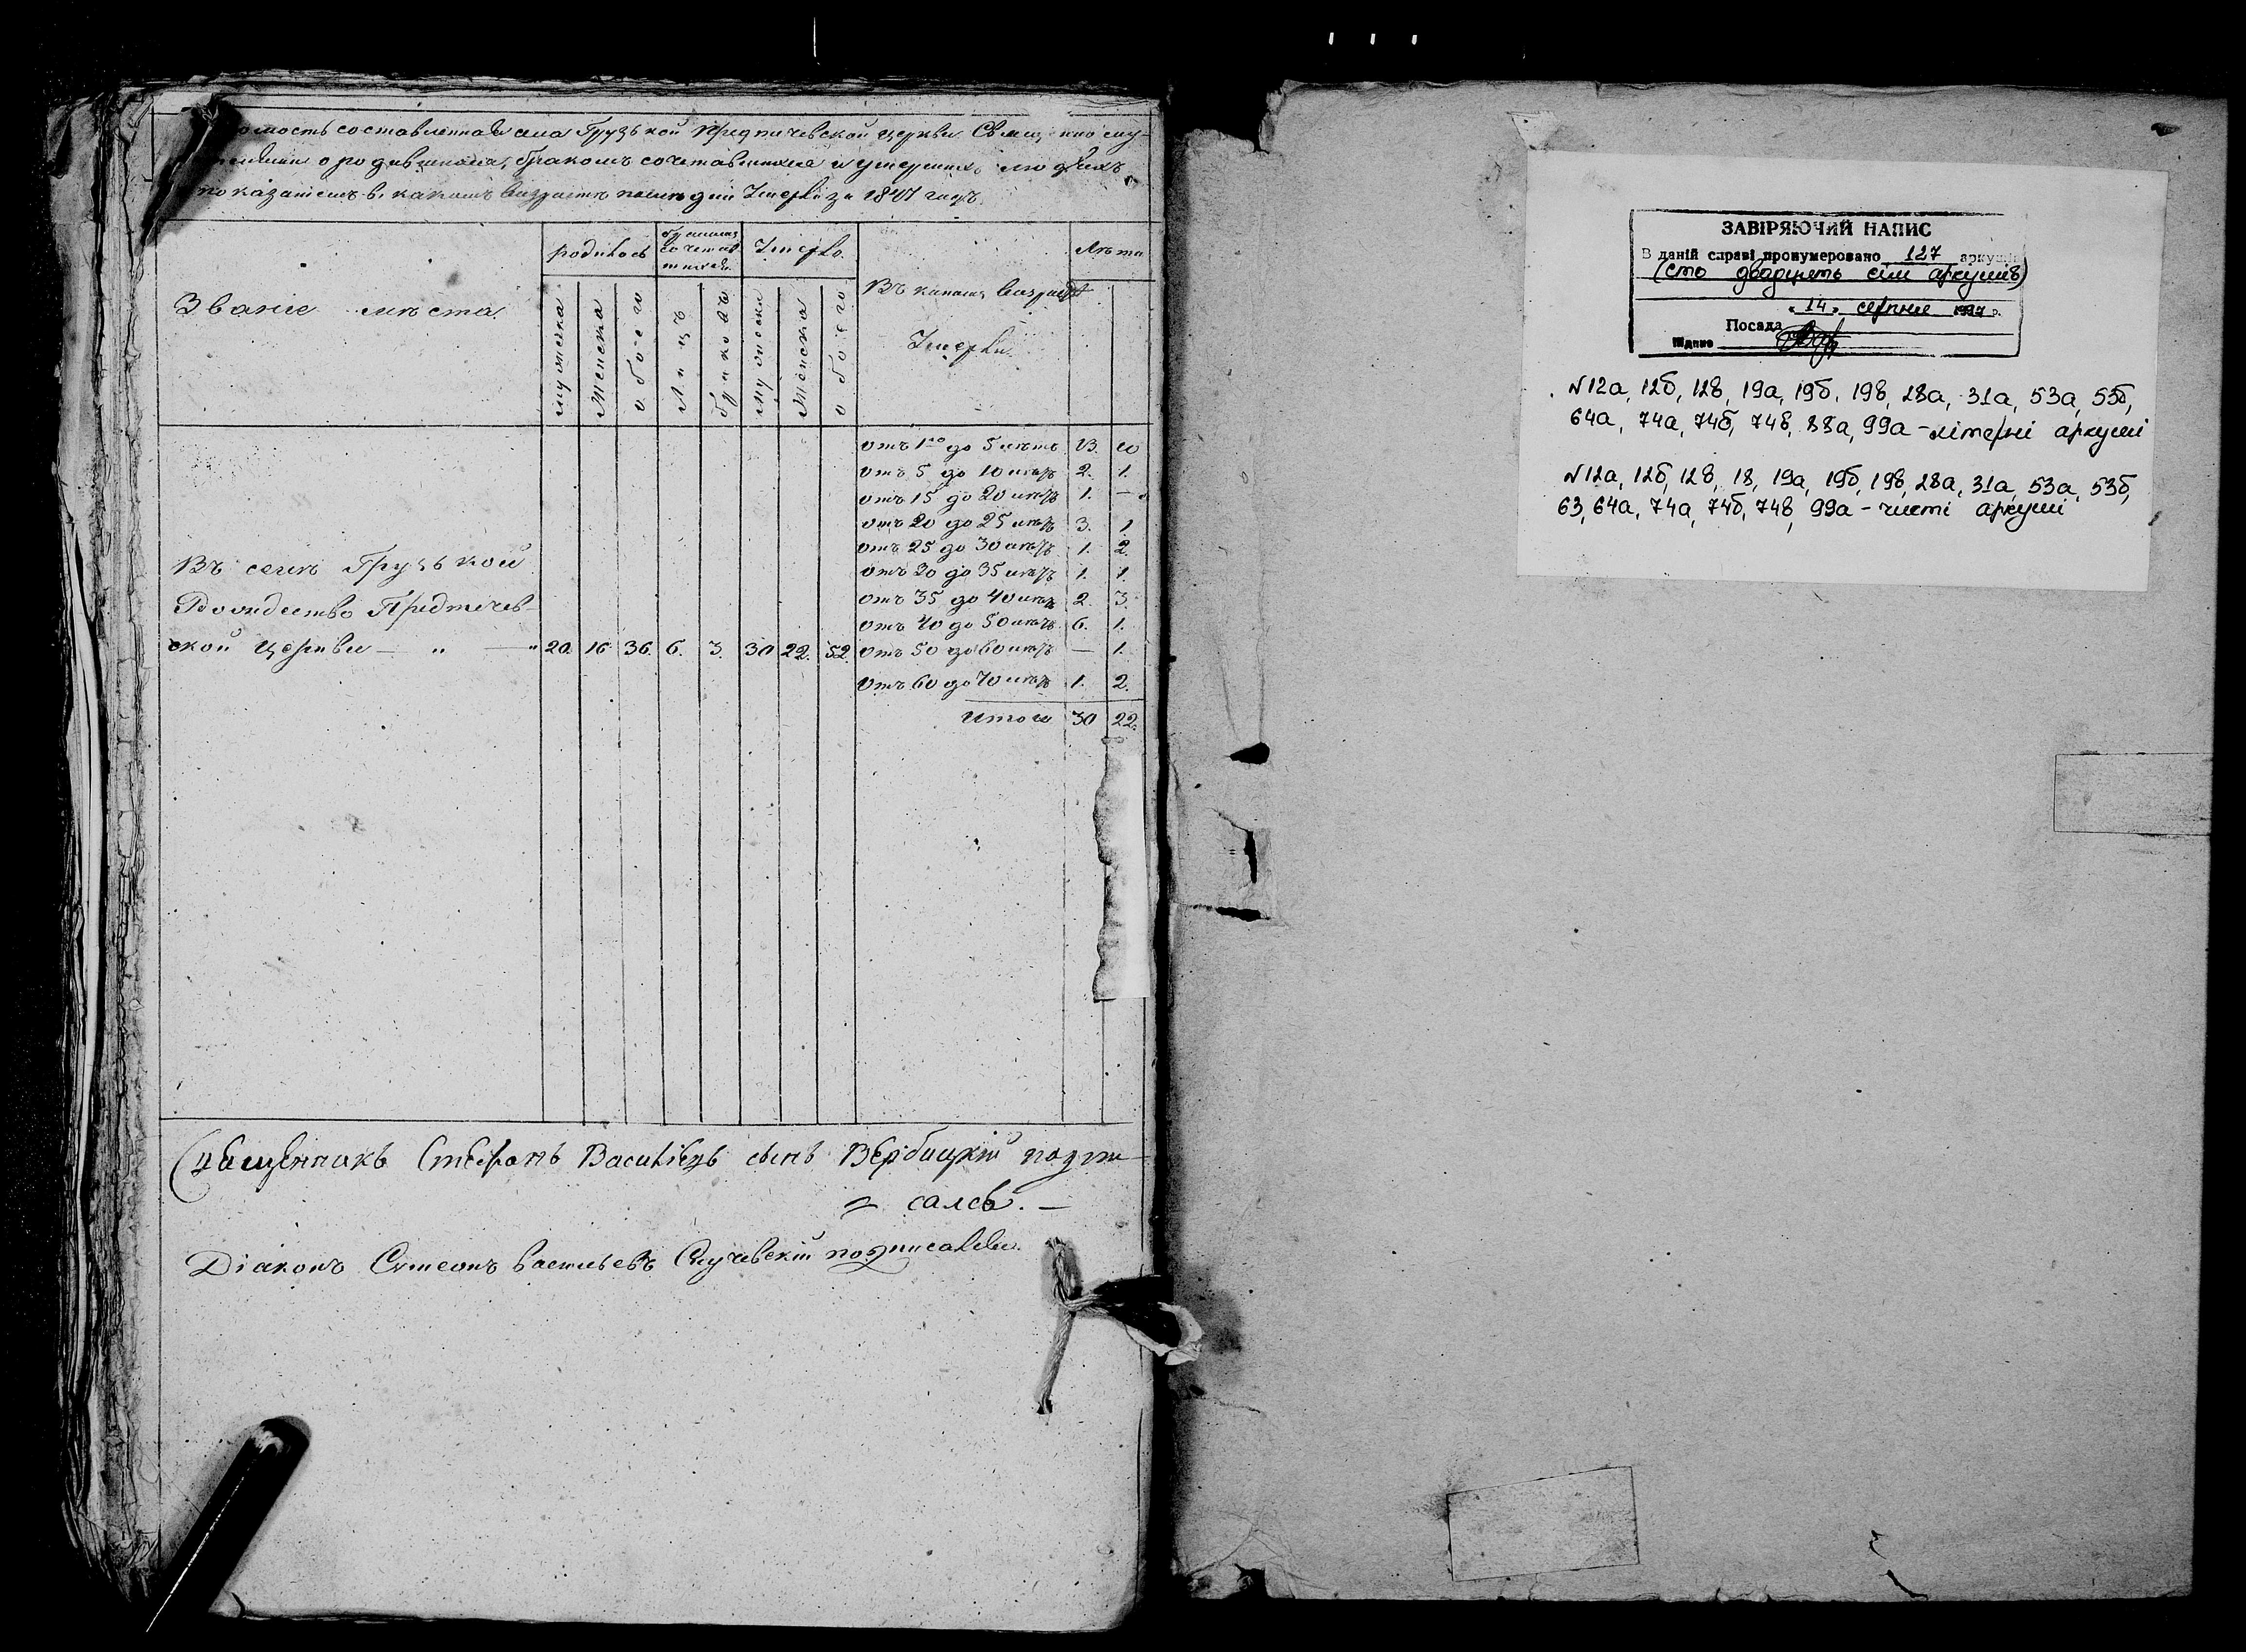 составленная села Грузькой Предтичевской церкви
о родившихся, бракомъ сочетавшихся и умершихъ людехъ
показаніемъ въ какомъ возрастѣ Умерли за 1841 годъ.
Званіе мѣста.
родилось
бракомъ сочетавшихся
Умерло.
Въ какомъ возрастѣ
Умерли.
Лѣта
мужеска
Женска
обоего
Лицъ
браковъ
мужеска
Женска
обоего
отъ 1го до 5 лѣтъ 13. 10
отъ 5 до 10 лѣтъ 2. 1.
отъ 15 до 20 лѣтъ 1. —
отъ 20 до 25 лѣтъ 3. 1
отъ 25 до 30 лѣтъ 1. 2.
отъ 30 до 35 лѣтъ 1. 1.
отъ 35 до 40 лѣтъ 2. 3.
отъ 40 до 50 лѣтъ 6. 1.
Въ селѣ Грузькой
Рождество Предтечев-
ской Церкви — „ — „ 20. 16 36. 6. 3. 30 22. 52. отъ 50 до 60 лѣтъ — 1.
отъ 60 до 70 лѣтъ 1. 2.
Итого 30 22.
Священникъ Стефанъ Василіевъ сынъ Вербицкій подпи-
салсь. —
Діаконъ Сумеонъ Васильевъ подписался.
ЗАВІРЯЮЧИЙ НАПИС
В даній справі пронумеровано 127 аркушів
(сто двадцять сім аркушів)
„14„ серпня 1997 р.
Посада
Підпис
№12а, 12б, 12в, 19а, 19б, 19в, 28а, 31а, 53а, 53б,
64а, 74а, 74б, 74в, 88а, 99а – літерні аркуші
№12а, 12б, 12в, 18, 19а, 19б, 19в, 28а, 31а, 53а, 53б,
63, 64а, 74а, 74б, 74в, 99а – чисті аркуші